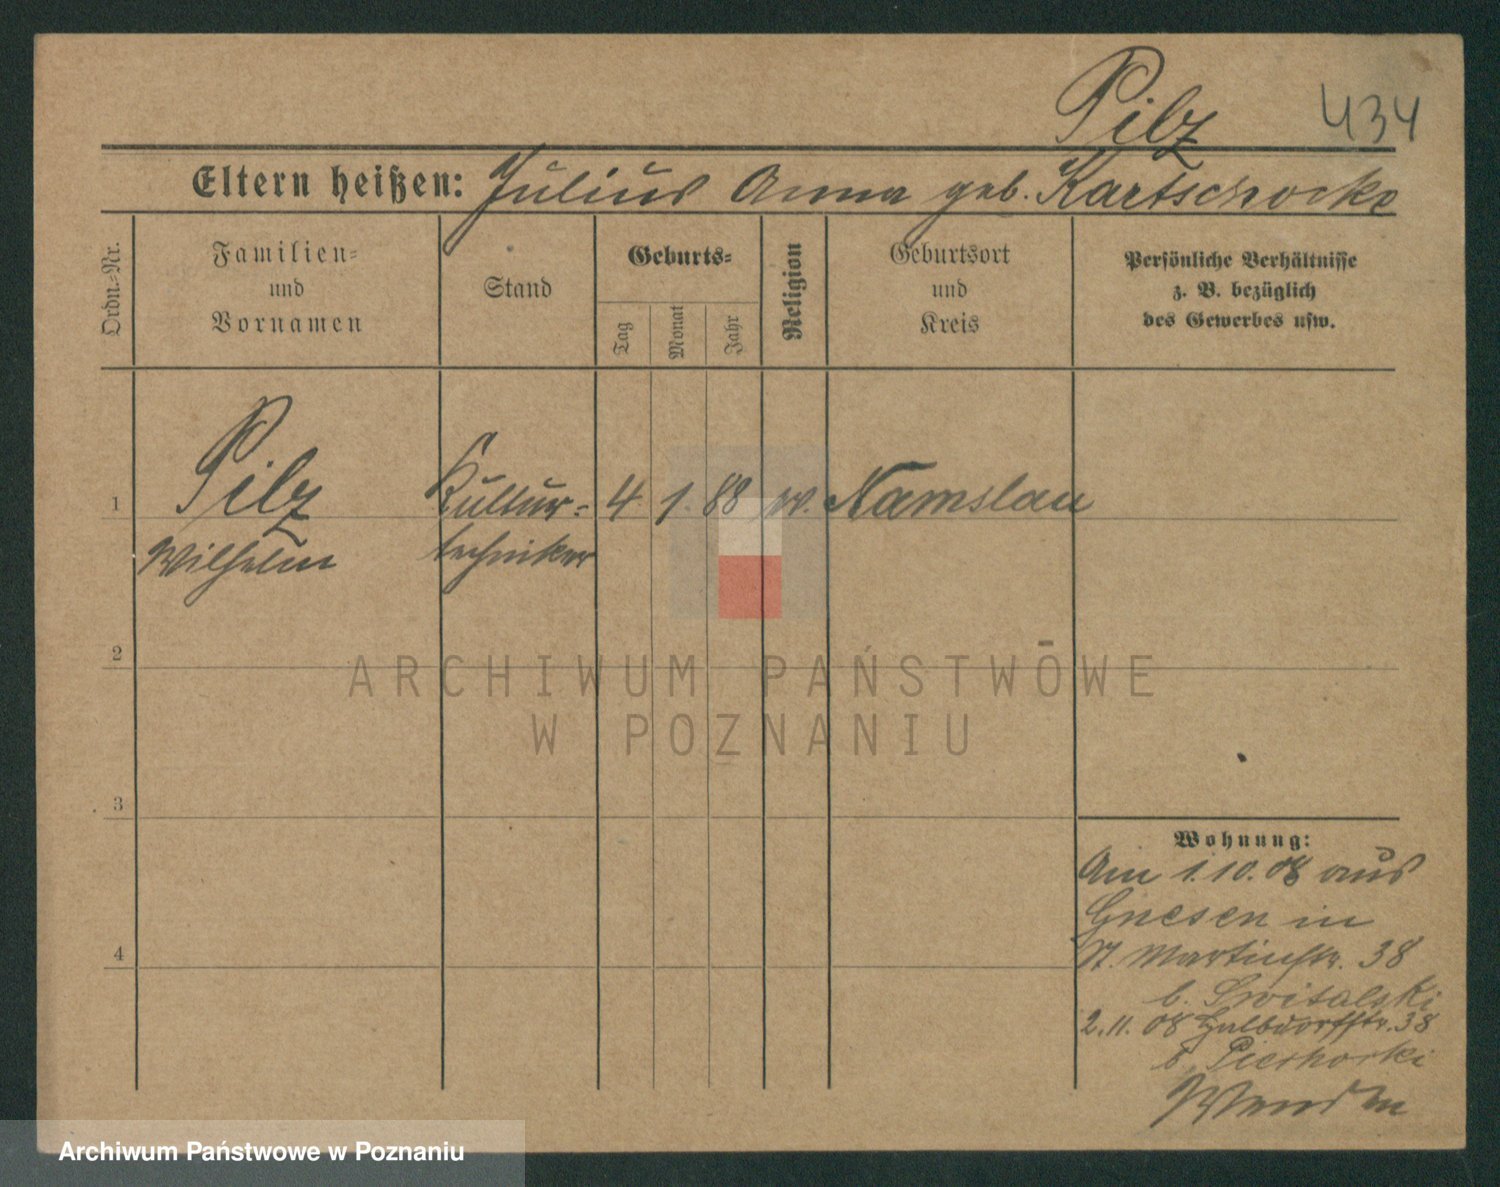 Pilz 434
Eltern heißen: Julius Anna geb. Kartschocke
Ordn.=Nr.
Familien=
und
Vornamen
Stand
Geburts=
Tag
Monat
Jahr
Religion
Geburtsort
und
Kreis
Persönliche Verhältnisse
z. B. bezüglich
des Gewerbes usw.
1 Pilz Kultur= 4. 1. 88 Namslau
Wilhelm techniker
2
ARCHIWUM PAŃSTWOWE
W POZNANIU
3
Wohnung:
Am 1.10.08 aus
Gnesen in
4
St. Martinstr. 38
b. Switalski
2.11.08 Halbdorfstr. 38
b.
Wenden
Archiwum Państwowe w Poznaniu